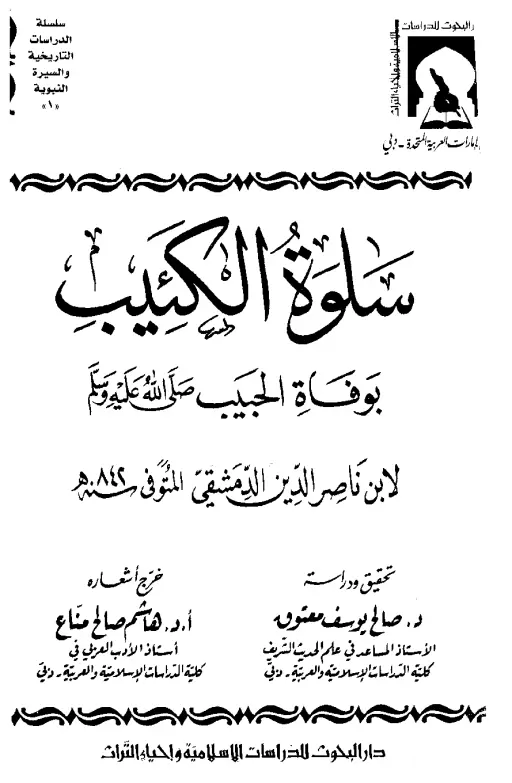 سلسلة
الدراسات
التاريخية
والسيرة
النبوية
«١»
دار البحوث للدراسات
الإسلامية وإحياء التراث
الإمارات العربية المتحدة - دبي
سَلوَةُ الكَئِيبِ
بوَفَاةِ الحَبيبِ صَلَّى اللهُ عَلَيْهِ وَسَلَّم
لابن نَاصِر الدِّين الدِّمَشقيّ المتُوفى سنة ٨٤٢ هـ
تحقيق ودراسة
د. صالح يوسف معتوق
الأستاذ المساعد في علم الحديث الشريف
كلية الدراسات الإسلامية والعربية - دبي
خرّج أشعاره
أ.د. هاشم صالح منّاع
أستاذ الأدب العربي في
كلية الدراسات الإسلامية والعربية - دبي
دار البحوث للدراسات الإسلامية وإحياء التراث